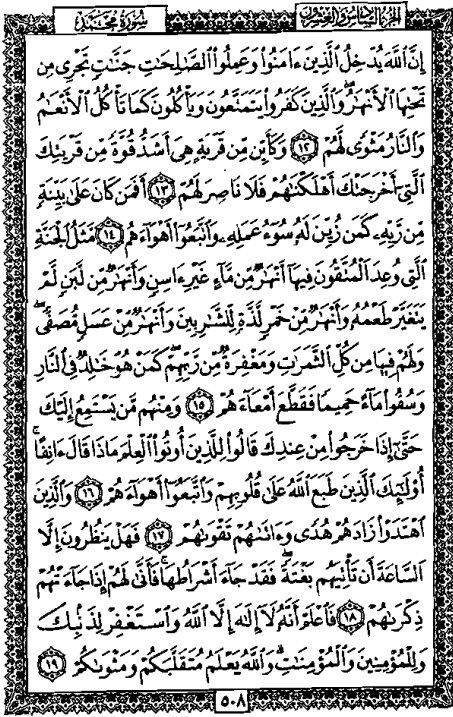 الجزء السادس والعشرون
سورة محمد
إِنَّ ٱللَّهَ يُدْخِلُ ٱلَّذِينَ ءَامَنُوا۟ وَعَمِلُوا۟ ٱلصَّٰلِحَٰتِ جَنَّٰتٍ تَجْرِى مِن
تَحْتِهَا ٱلْأَنْهَٰرُ وَٱلَّذِينَ كَفَرُوا۟ يَتَمَتَّعُونَ وَيَأْكُلُونَ كَمَا تَأْكُلُ ٱلْأَنْعَٰمُ
وَٱلنَّارُ مَثْوًى لَّهُمْ ١٢ وَكَأَيِّن مِّن قَرْيَةٍ هِىَ أَشَدُّ قُوَّةً مِّن قَرْيَتِكَ
ٱلَّتِىٓ أَخْرَجَتْكَ أَهْلَكْنَٰهُمْ فَلَا نَاصِرَ لَهُمْ ١٣ أَفَمَن كَانَ عَلَىٰ بَيِّنَةٍ
مِّن رَّبِّهِۦ كَمَن زُيِّنَ لَهُۥ سُوٓءُ عَمَلِهِۦ وَٱتَّبَعُوٓا۟ أَهْوَآءَهُم ١٤ مَّثَلُ ٱلْجَنَّةِ
ٱلَّتِى وُعِدَ ٱلْمُتَّقُونَ فِيهَآ أَنْهَٰرٌ مِّن مَّآءٍ غَيْرِ ءَاسِنٍ وَأَنْهَٰرٌ مِّن لَّبَنٍ لَّمْ
يَتَغَيَّرْ طَعْمُهُۥ وَأَنْهَٰرٌ مِّنْ خَمْرٍ لَّذَّةٍ لِّلشَّٰرِبِينَ وَأَنْهَٰرٌ مِّنْ عَسَلٍ مُّصَفًّى
وَلَهُمْ فِيهَا مِن كُلِّ ٱلثَّمَرَٰتِ وَمَغْفِرَةٌ مِّن رَّبِّهِمْ كَمَنْ هُوَ خَٰلِدٌ فِى ٱلنَّارِ
وَسُقُوا۟ مَآءً حَمِيمًا فَقَطَّعَ أَمْعَآءَهُمْ ١٥ وَمِنْهُم مَّن يَسْتَمِعُ إِلَيْكَ
حَتَّىٰٓ إِذَا خَرَجُوا۟ مِنْ عِندِكَ قَالُوا۟ لِلَّذِينَ أُوتُوا۟ ٱلْعِلْمَ مَاذَا قَالَ ءَانِفًا ۚ
أُو۟لَٰٓئِكَ ٱلَّذِينَ طَبَعَ ٱللَّهُ عَلَىٰ قُلُوبِهِمْ وَٱتَّبَعُوٓا۟ أَهْوَآءَهُمْ ١٦ وَٱلَّذِينَ
ٱهْتَدَوْا۟ زَادَهُمْ هُدًى وَءَاتَىٰهُمْ تَقْوَىٰهُمْ ١٧ فَهَلْ يَنظُرُونَ إِلَّا
ٱلسَّاعَةَ أَن تَأْتِيَهُم بَغْتَةً ۖ فَقَدْ جَآءَ أَشْرَاطُهَا ۚ فَأَنَّىٰ لَهُمْ إِذَا جَآءَتْهُمْ
ذِكْرَىٰهُمْ ١٨ فَٱعْلَمْ أَنَّهُۥ لَآ إِلَٰهَ إِلَّا ٱللَّهُ وَٱسْتَغْفِرْ لِذَنۢبِكَ
وَلِلْمُؤْمِنِينَ وَٱلْمُؤْمِنَٰتِ ۗ وَٱللَّهُ يَعْلَمُ مُتَقَلَّبَكُمْ وَمَثْوَىٰكُمْ ١٩
٥٠٨